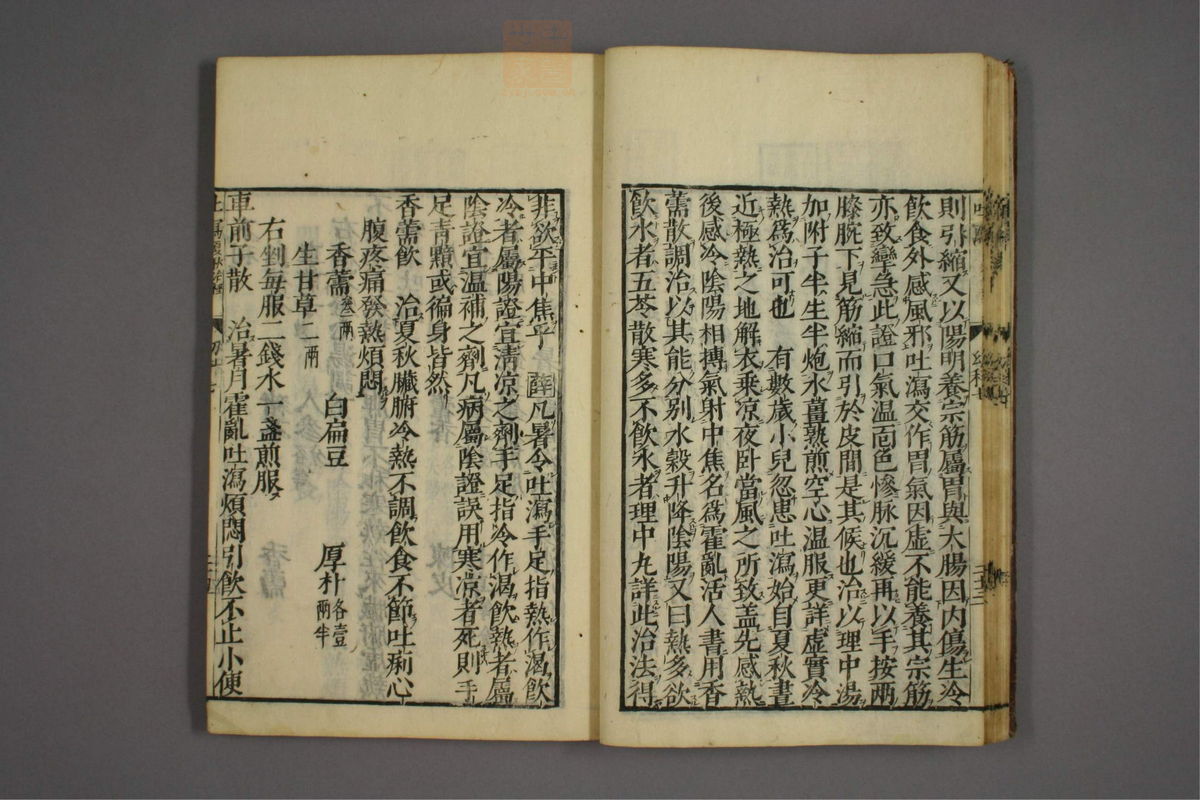 則引縮又以陽明養宗筋屬胃與大腸因内傷生冷
飲食外感風邪吐瀉交作胃氣因虛不能養其宗筋
亦致攣急此證口氣温靣色慘脉沉緩再以手按兩
膝腕下見筋縮而引於皮間是其候也治以理中湯
加附子半生半炮水薑熟煎空心温服更詳虛實冷
熱爲治可也　有數歲小兒忽患吐瀉始自夏秋晝
近極熱之地解衣乘凉夜卧當風之所致盖先感熱
後感冷陰陽相搏氣射中焦名爲霍亂活人書用香
薷散調治以其能分别水穀升降陰陽又曰熱多欲
飲水者五苓散寒多不飲水者理中丸詳此治法得
非欲平中焦乎　薛凡暑令吐瀉手足指熱作渴飲
冷者屬陽證宜清凉之劑手足指冷作渴飲熱者屬
陰證宜温補之劑凡病屬陰證誤用寒凉者死則手
足青黯或徧身皆然
香薷飲　治夏秋臟腑冷熱不調飲食不節吐痢心
腹疼痛發熱煩悶
香薷叁兩　白扁豆　厚朴各壹兩半
生甘草二兩
右剉每服二錢水一盞煎服
車前子散　治暑月霍亂吐瀉煩悶引飲不止小便